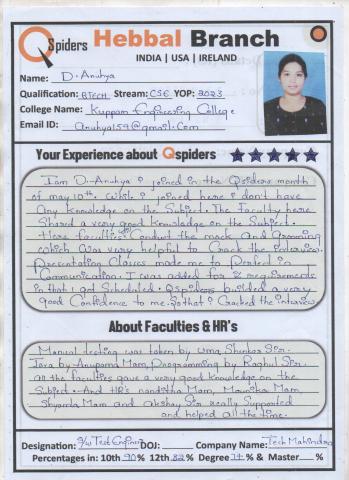 QSpiders Hebbal Branch
INDIA | USA | IRELAND
Name: D. Anuhya
Qualification: BTECH Stream: CSE YOP: 2023
College Name: Kuppam Engineering College
Email ID: anuhya159@gmail.com
Your Experience about Qspiders
I am D. Anuhya i joined in the Qspiders month
of may 10th. While i joined here i don't have
Any knowledge on the Subject. The Faculty here
Shared a very good knowledge on the Subject.
Here faculty's Conduct the mock and Gromming
which was very helpful to Crack the interview.
Presentation Classes made me to Perfect in
Communication. I was added for 2 requirements
in that i got Scheduled. Qspiders builded a very
good Confidence to me. So that i Cracked the interview.
About Faculties & HR's
Manual testing was taken by Uma Shankar Sir.
Java by Anupama Mam, Programming by Raghul Sir.
all the faculties gave a very good knowledge on the
Subject. And HR's nanditha Mam, Mounika Mam,
Shyamla Mam and akshay Sir really Supported
and helped all the time.
Designation: S/w Test Engineer DOJ: Company Name: Tech Mahindra
Percentages in: 10th 90% 12th 82% Degree 74% & Master %